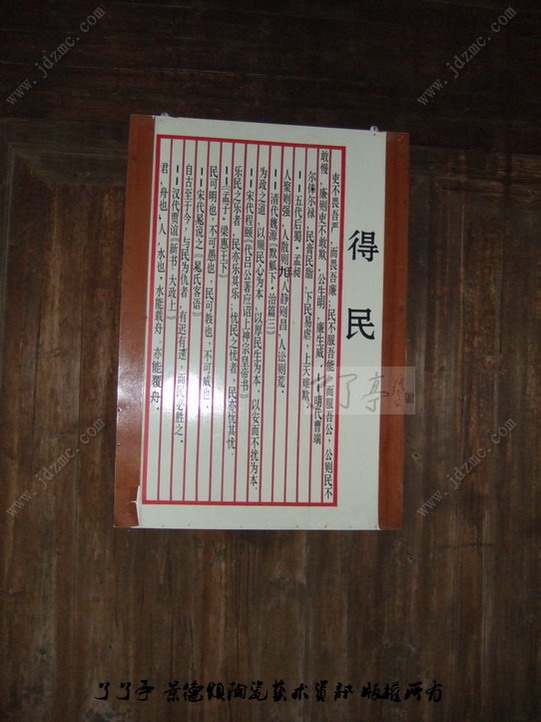 得民
吏不畏吾严，而畏吾廉；民不服吾能，而服吾公，公则民不
敢慢，廉则吏不敢欺。公生明，廉生威。——明代曹端
尔俸尔禄，民膏民脂，下民易虐，上天难欺。
——五代后蜀·孟昶
人聚则强，人散则尫，人静则昌，人讼则荒。
——清代魏源《默觚下·治篇三》
为政之道，以顺民心为本，以厚民生为本，以安而不扰为本。
——宋代程颐《代吕公著应诏上神宗皇帝书》
乐民之乐者，民亦乐其乐，忧民之忧者，民亦忧其忧。
——《孟子·梁惠王下》
民可明也，不可愚也，民可教也，不可威也。
——宋代晁说之《晁氏客语》
自古至于今，与民为仇者，有迟有速，而民必胜之。
——汉代贾谊《新书·大政上》
君，舟也，人，水也。水能载舟，亦能覆舟。
了了亭
了了亭 景德镇陶瓷艺术资部 版权所有
www.jdzmc.com
www.jdzmc.com
www.jdzmc.com
www.jdzmc.com
www.jdzmc.com
www.jdzmc.com